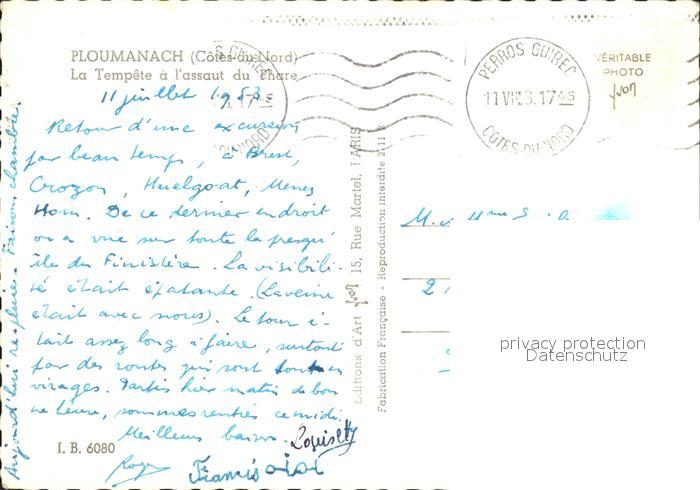 PLOUMANACH (Côtes-du-Nord)
La Tempête à l'assaut du Phare
11 juillet 1953
Retour d'une excursion
par beau temps, à Brest,
Crozon, Huelgoat, Menez
Hom. De ce dernier endroit
on a vue sur toute la presqu'
île du Finistère. La visibili-
té était épatante. (La veine
était avec nous). Le tour é-
tait assez long à faire, surtout
par des routes qui sont tout en
virages. Partis hier matin de bon
ne heure, sommes rentrés ce midi.
Meilleurs baisers.
Roger
Aujourd'hui re-pluie. Faisons chambrée.
I. B. 6080
Editions d'Art Yvon 15, Rue Martel, PARIS
Fabrication Française - Reproduction interdite
PERROS GUIREC
11 VII 53. 17 45
COTES-DU-NORD
VÉRITABLE
PHOTO
yvon
privacy protection
Datenschutz